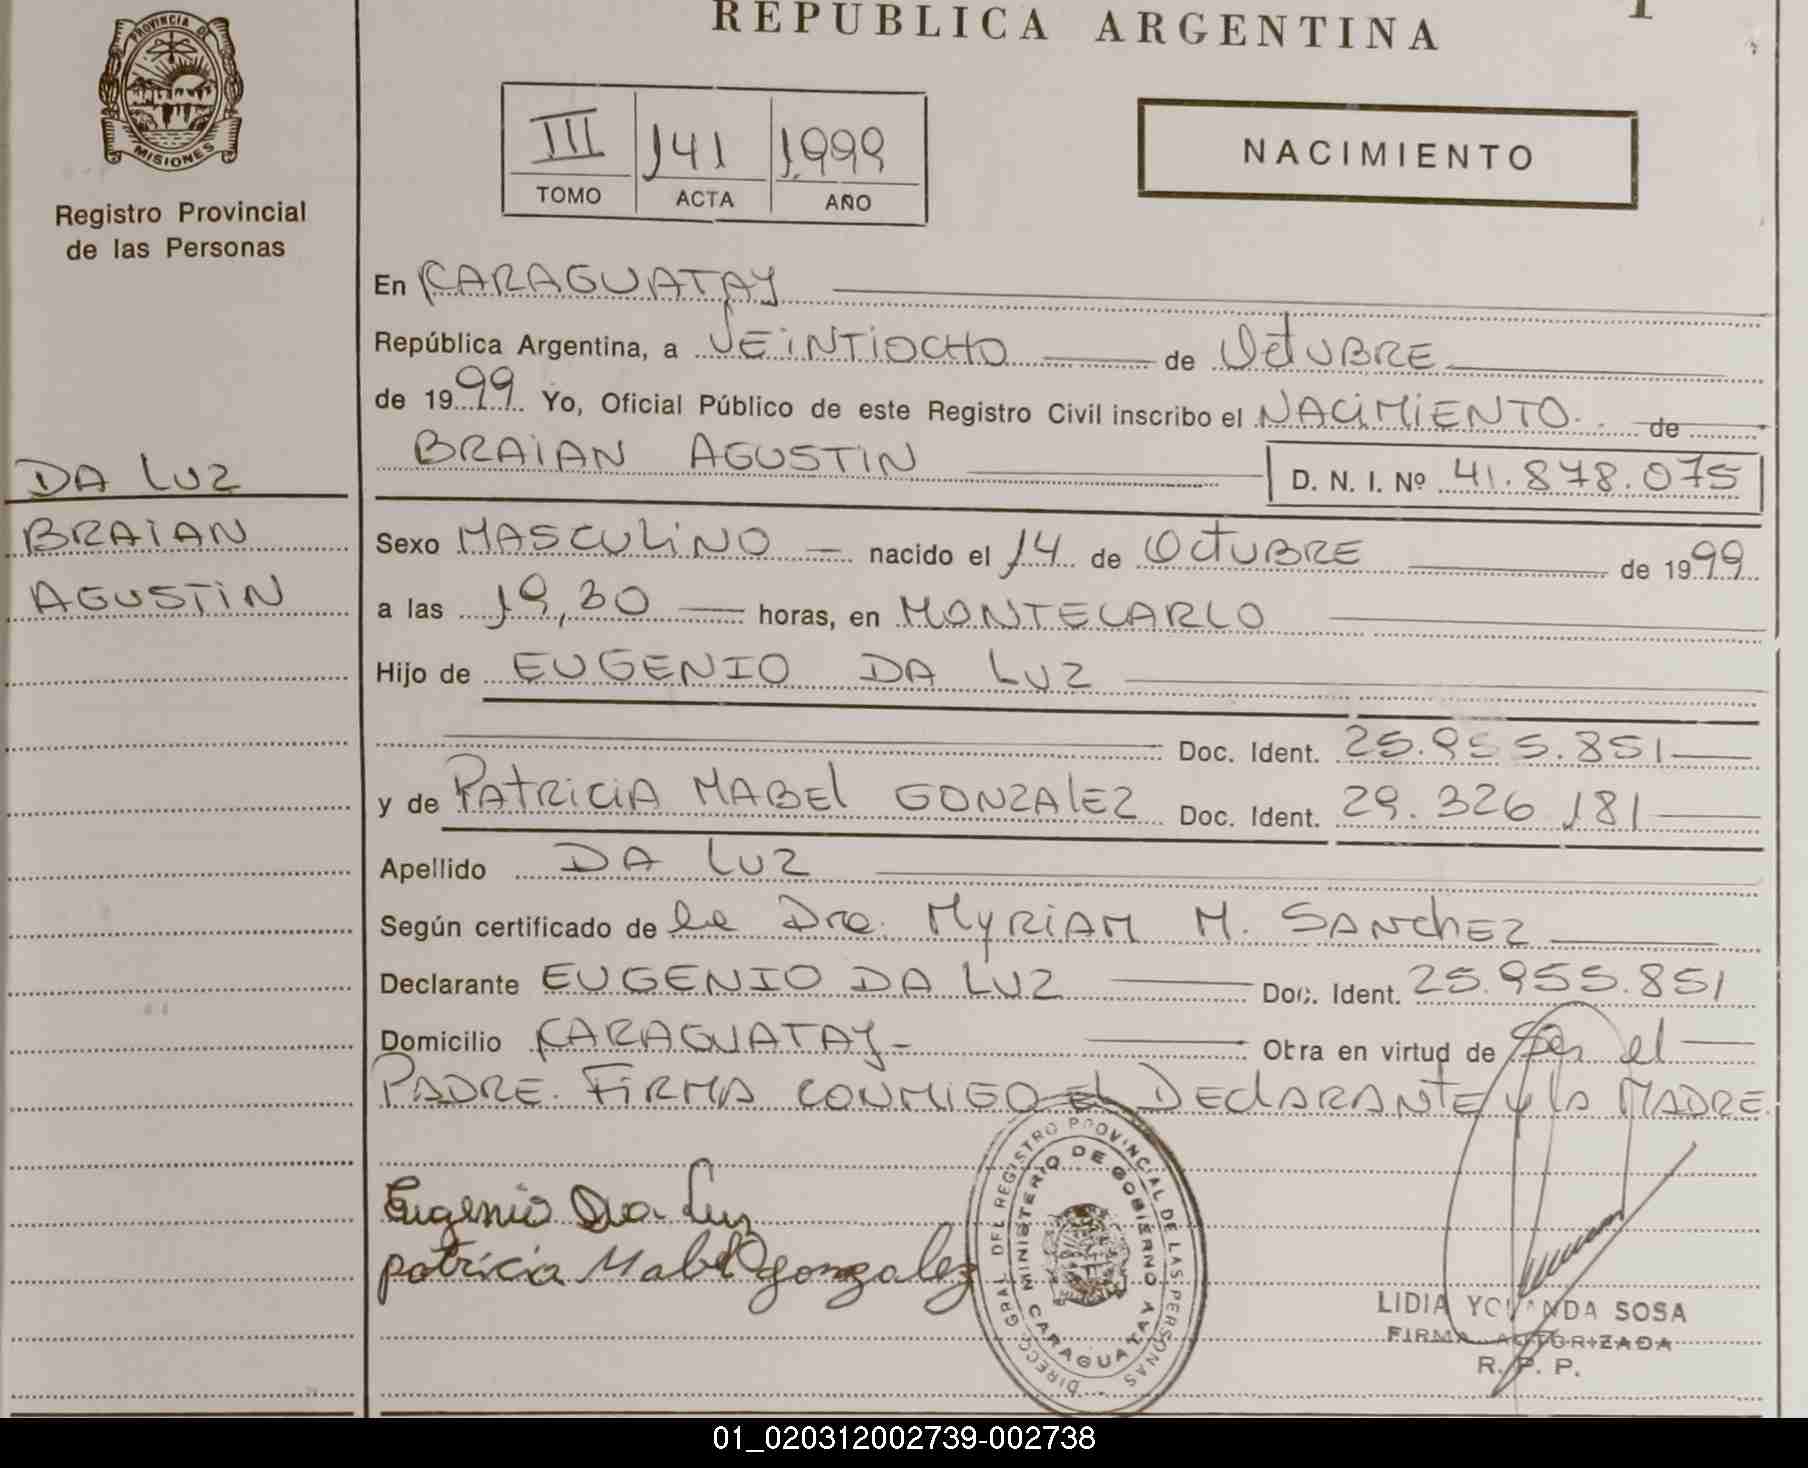 REPUBLICA ARGENTINA
1
PROVINCIA DE
MISIONES
Registro Provincial
de las Personas
III 141 1.999
TOMO ACTA AÑO
NACIMIENTO
En CARAGUATAY
República Argentina, a VEiNTiOCHO de OctUBRE
de 1999 Yo, Oficial Público de este Registro Civil inscribo el NACiMiENTO de
BRAiAN AGUSTIN D. N. I. Nº 41.878.075
DA LUZ
BRAiAN
AGUSTiN
Sexo MASCULiNO nacido el 14 de OctUBRE de 1999
a las 19,30 horas, en MONTECARLO
Hijo de EUGENIO DA LUZ
Doc. Ident. 25.955.851
y de PAtRiCiA MABEl GONZAlEZ Doc. Ident. 29.326.181
Apellido DA LUZ
Según certificado de la Dra. MyRiAM M. SANchEZ
Declarante EUGENIO DA LUZ Doc. Ident. 25.955.851
Domicilio CARAGUATAY- Otra en virtud de Ser el
PADRE. FiRMA CONMIGO El DEClARANte y lA MADRE.
Eugenio Da Luz
patricia Mabel gonzalez
DIRECC. GRAL. DEL REGISTRO PROVINCIAL DE LAS PERSONAS
MINISTERIO DE GOBIERNO
CARAGUATAY
LIDIA YOLANDA SOSA
FIRMA AUTORIZADA
R. P. P.
01_020312002739-002738